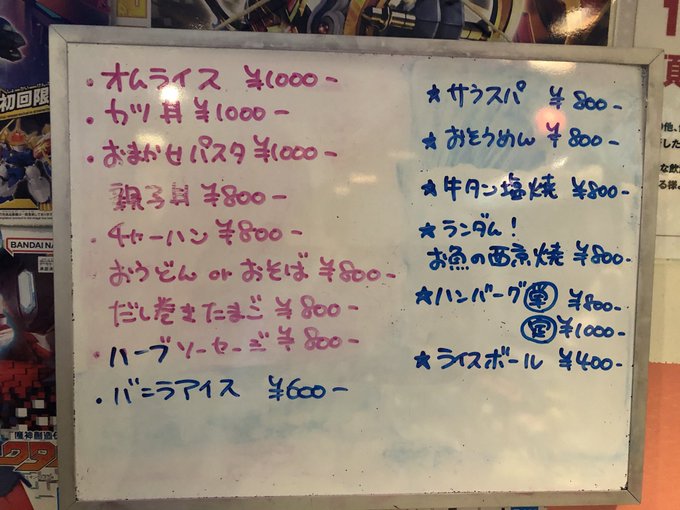 ・オムライス ¥1000-
・カツ丼 ¥1000-
・おまかせパスタ ¥1000-
親子丼 ¥800-
・チャーハン ¥800-
おうどん or おそば ¥800-
だし巻きたまご ¥800-
・ハーブソーセージ ¥800-
・バニラアイス ¥600-
★サラスパ ¥800-
★おそうめん ¥800-
★牛タン塩焼 ¥800-
★ランダム!
お魚の西京焼 ¥800-
★ハンバーグ ¥800-
¥1000-
★ライスボール ¥400-
初回限
BANDAI NA
魔神創造伝
クタ